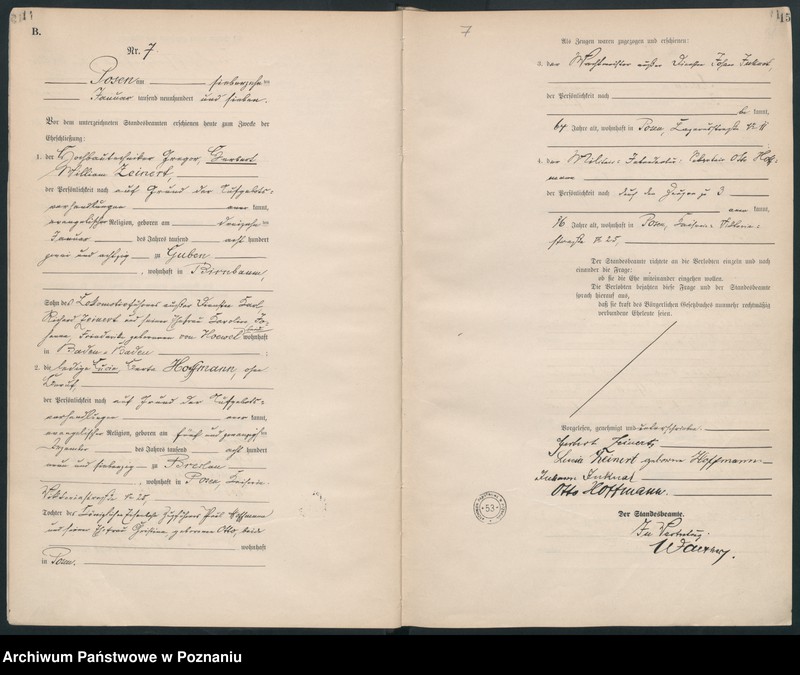 B.
Nr. 7
Posen am siebzehnten
Januar tausend neunhundert und sieben.
Vor dem unterzeichneten Standesbeamten erschienen heute zum Zwecke der
Eheschließung:
1. der Hochbautechniker Gregor, Herbert
William Zeinert,
der Persönlichkeit nach auf Grund der Aufgebots-
verhandlungen kannt,
evangelischer Religion, geboren am dreizehnten
Januar des Jahres tausend acht hundert
zwei und achtzig zu Guben
, wohnhaft in Birnbaum,
Sohn des Lokomotivführers außer Diensten Karl
Richard Zeinert und seiner Ehefrau
geborenen von wohnhaft
in Baden-Baden ;
2. die ledige Lucie, Hoffmann, ohne
Beruf,
der Persönlichkeit nach auf Grund der Aufgebots-
verhandlungen kannt,
evangelischer Religion, geboren am fünf und zwanzigsten
Dezember des Jahres tausend acht hundert
neun und siebenzig zu Breslau
, wohnhaft in Posen,
Viktoriastraße Nr. 25,
Tochter des Königlichen Eisenbahn Zugführers Paul Hoffmann
und seiner Ehefrau geborenen Otto, beide
wohnhaft
in Posen.
7
15
Als Zeugen waren zugezogen und erschienen:
3. der Wachtmeister außer Diensten
der Persönlichkeit nach
be kannt,
64 Jahre alt, wohnhaft in Posen, Nr. 11
4. der Militär-Intendantur-Sekretär Otto Hoff-
mann
der Persönlichkeit nach durch den Zeugen zu 3
kannt,
36 Jahre alt, wohnhaft in Posen,
straße Nr. 25,
Der Standesbeamte richtete an die Verlobten einzeln und nach
einander die Frage:
ob sie die Ehe miteinander eingehen wollen.
Die Verlobten bejahten diese Frage und der Standesbeamte
sprach hierauf aus,
daß sie kraft des Bürgerlichen Gesetzbuchs nunmehr rechtmäßig
verbundene Eheleute seien.
Vorgelesen, genehmigt und unterschrieben
Herbert Zeinert,
Lucie Zeinert geborene Hoffmann
Otto Hoffmann.
53
Der Standesbeamte.
In Vertretung.
Archiwum Państwowe w Poznaniu